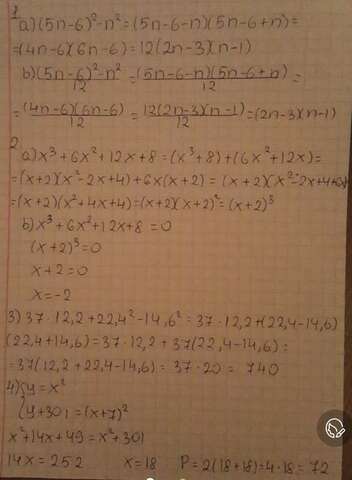 1
a) (5n-6)²-n² = (5n-6-n)(5n-6+n) =
=(4n-6)(6n-6) = 12(2n-3)(n-1)
b) (5n-6)²-n²/12 = (5n-6-n)(5n-6+n)/12 =
= (4n-6)(6n-6)/12 = 12(2n-3)(n-1)/12 = (2n-3)(n-1)
2
a) x³+6x²+12x+8 = (x³+8)+(6x²+12x) =
=(x+2)(x²-2x+4)+6x(x+2) = (x+2)(x²-2x+4+6x)
=(x+2)(x²+4x+4)=(x+2)(x+2)²=(x+2)³
b) x³+6x²+12x+8 = 0
(x+2)³=0
x+2=0
x=-2
3) 37·12,2+22,4²-14,6² = 37·12,2+(22,4-14,6)
(22,4+14,6) = 37·12,2+37(22,4-14,6) =
=37(12,2+22,4-14,6) = 37·20 = 740
4) { y=x²
{ y+301=(x+7)²
x²+14x+49=x²+301
14x=252 x=18 P=2(18+18)=4·18=72